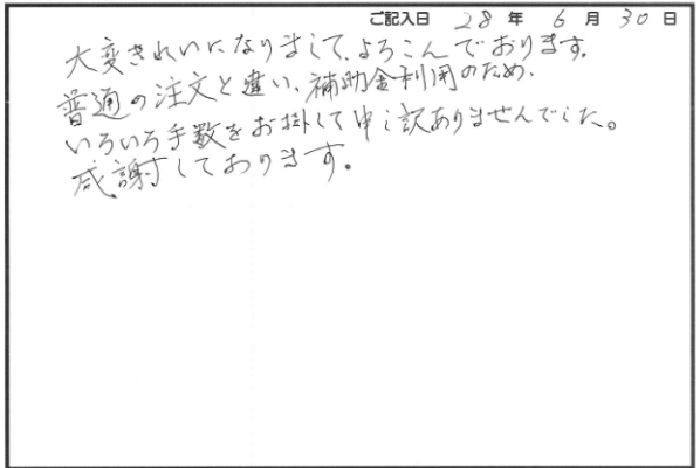 ご記入日 28 年 6 月 30 日
大変きれいになりまして、よろこんでおります。
普通の注文と違い、補助金利用のため、
いろいろ手数をお掛して申し訳ありませんでした。
感謝しております。